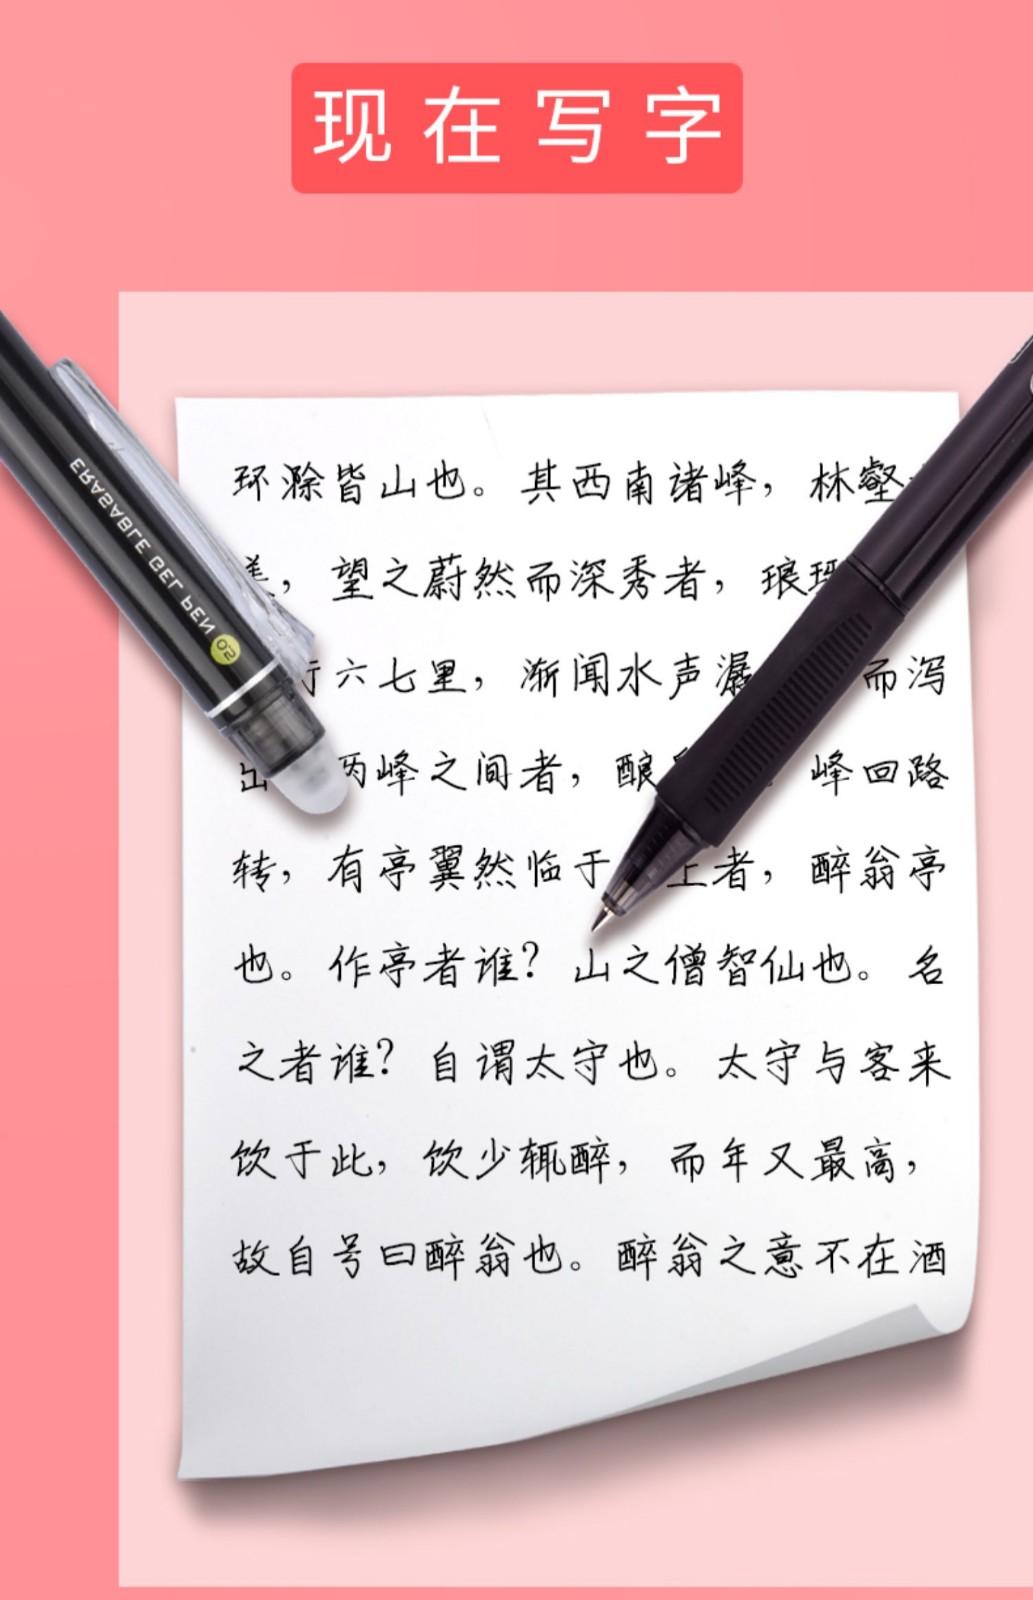 现在写字
环滁皆山也。其西南诸峰，林壑
，望之蔚然而深秀者，琅
行六七里，渐闻水声潺 而泻
出 两峰之间者，酿 峰回路
转，有亭翼然临于 上者，醉翁亭
也。作亭者谁？山之僧智仙也。名
之者谁？自谓太守也。太守与客来
饮于此，饮少辄醉，而年又最高，
故自号曰醉翁也。醉翁之意不在酒
ERASABLE GEL PEN 0.5